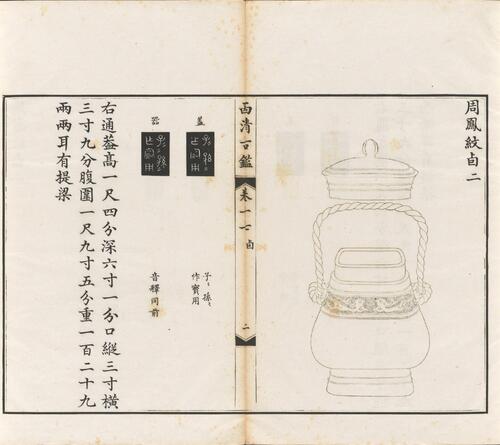 周鳳紋卣二
西清古鑑
卷十七 卣
二
蓋
子〻孫〻
作寶用
器
音釋同前
右通蓋高一尺四分深六寸一分口縱三寸橫
三寸九分腹圍一尺九寸五分重一百二十九
兩兩耳有提梁